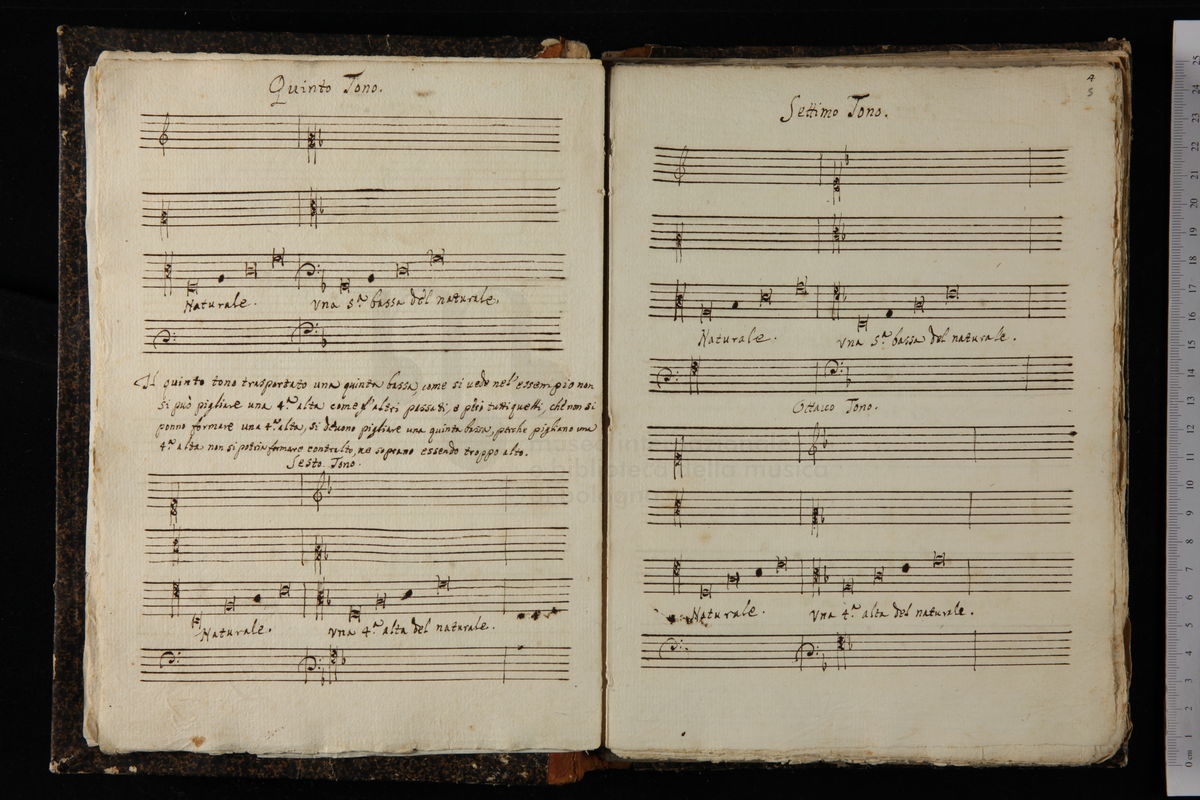 Quinto Tono.
Naturale. Una 5.ª bassa del naturale.
Il quinto tono trasportato una quinta bassa, come si vede nel' essempio non
si può pigliare una 4.ª alta come gl'altri passati, e però tutti quelli, che non si
ponno formare una 4.ª alta, si devono pigliare una quinta bassa, perche pigliano una
4.ª alta non si potria formare contralto, ne soprano essendo troppo alto.
Sesto Tono.
Naturale. Una 4.ª alta del naturale.
4
5
Settimo Tono.
Naturale. Una 5.ª bassa del naturale.
Ottavo Tono.
Naturale. Una 4.ª alta del naturale.
museo internazionale
e biblioteca della musica
di bologna
0 cm 1 2 3 4 5 6 7 8 9 10 11 12 13 14 15 16 17 18 19 20 21 22 23 24 25